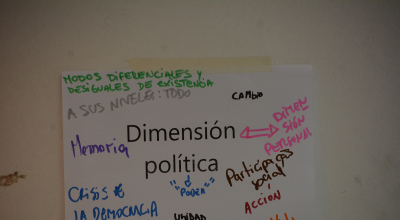 MODOS DIFERENCIALES Y
DESIGUALES DE EXISTENCIA
A SUS NIVELES: TODO
CAMBIO
DIMEN
SIÓN
PERSONAL
Memoria
Dimensión
política
Participación
social
"el
PODER"
CRISIS DE
LA DEMOCRACIA
ACCIÓN
UNIDAD